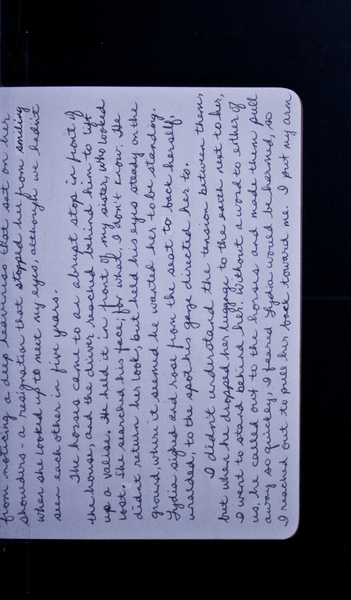 from noticing a deep heaviness that sat on her
shoulders - a resignation that stopped her from smiling
when she looked up to meet my eyes, although we hadn't
seen each other in five years.
The horses came to an abrupt stop in front of
the house, and the driver reached behind him to lift
up a valise. He held it in front of my sister, who looked
lost. She searched his face, for what, I don't know. He
didn't return her look, but held his eyes steady on the
ground, where it seemed he wanted her to be standing.
Lydia sighed and rose from the seat to back herself,
unaided, to the spot his gaze directed her to.
I didn't understand the tension between them,
but when he dropped her luggage to the earth next to her,
I went to stand behind her. Without a word to either of
us, he called out to the horses and made them pull
away so quickly, I feared Lydia would be harmed, so
I reached out to pull her back toward me. I put my arm